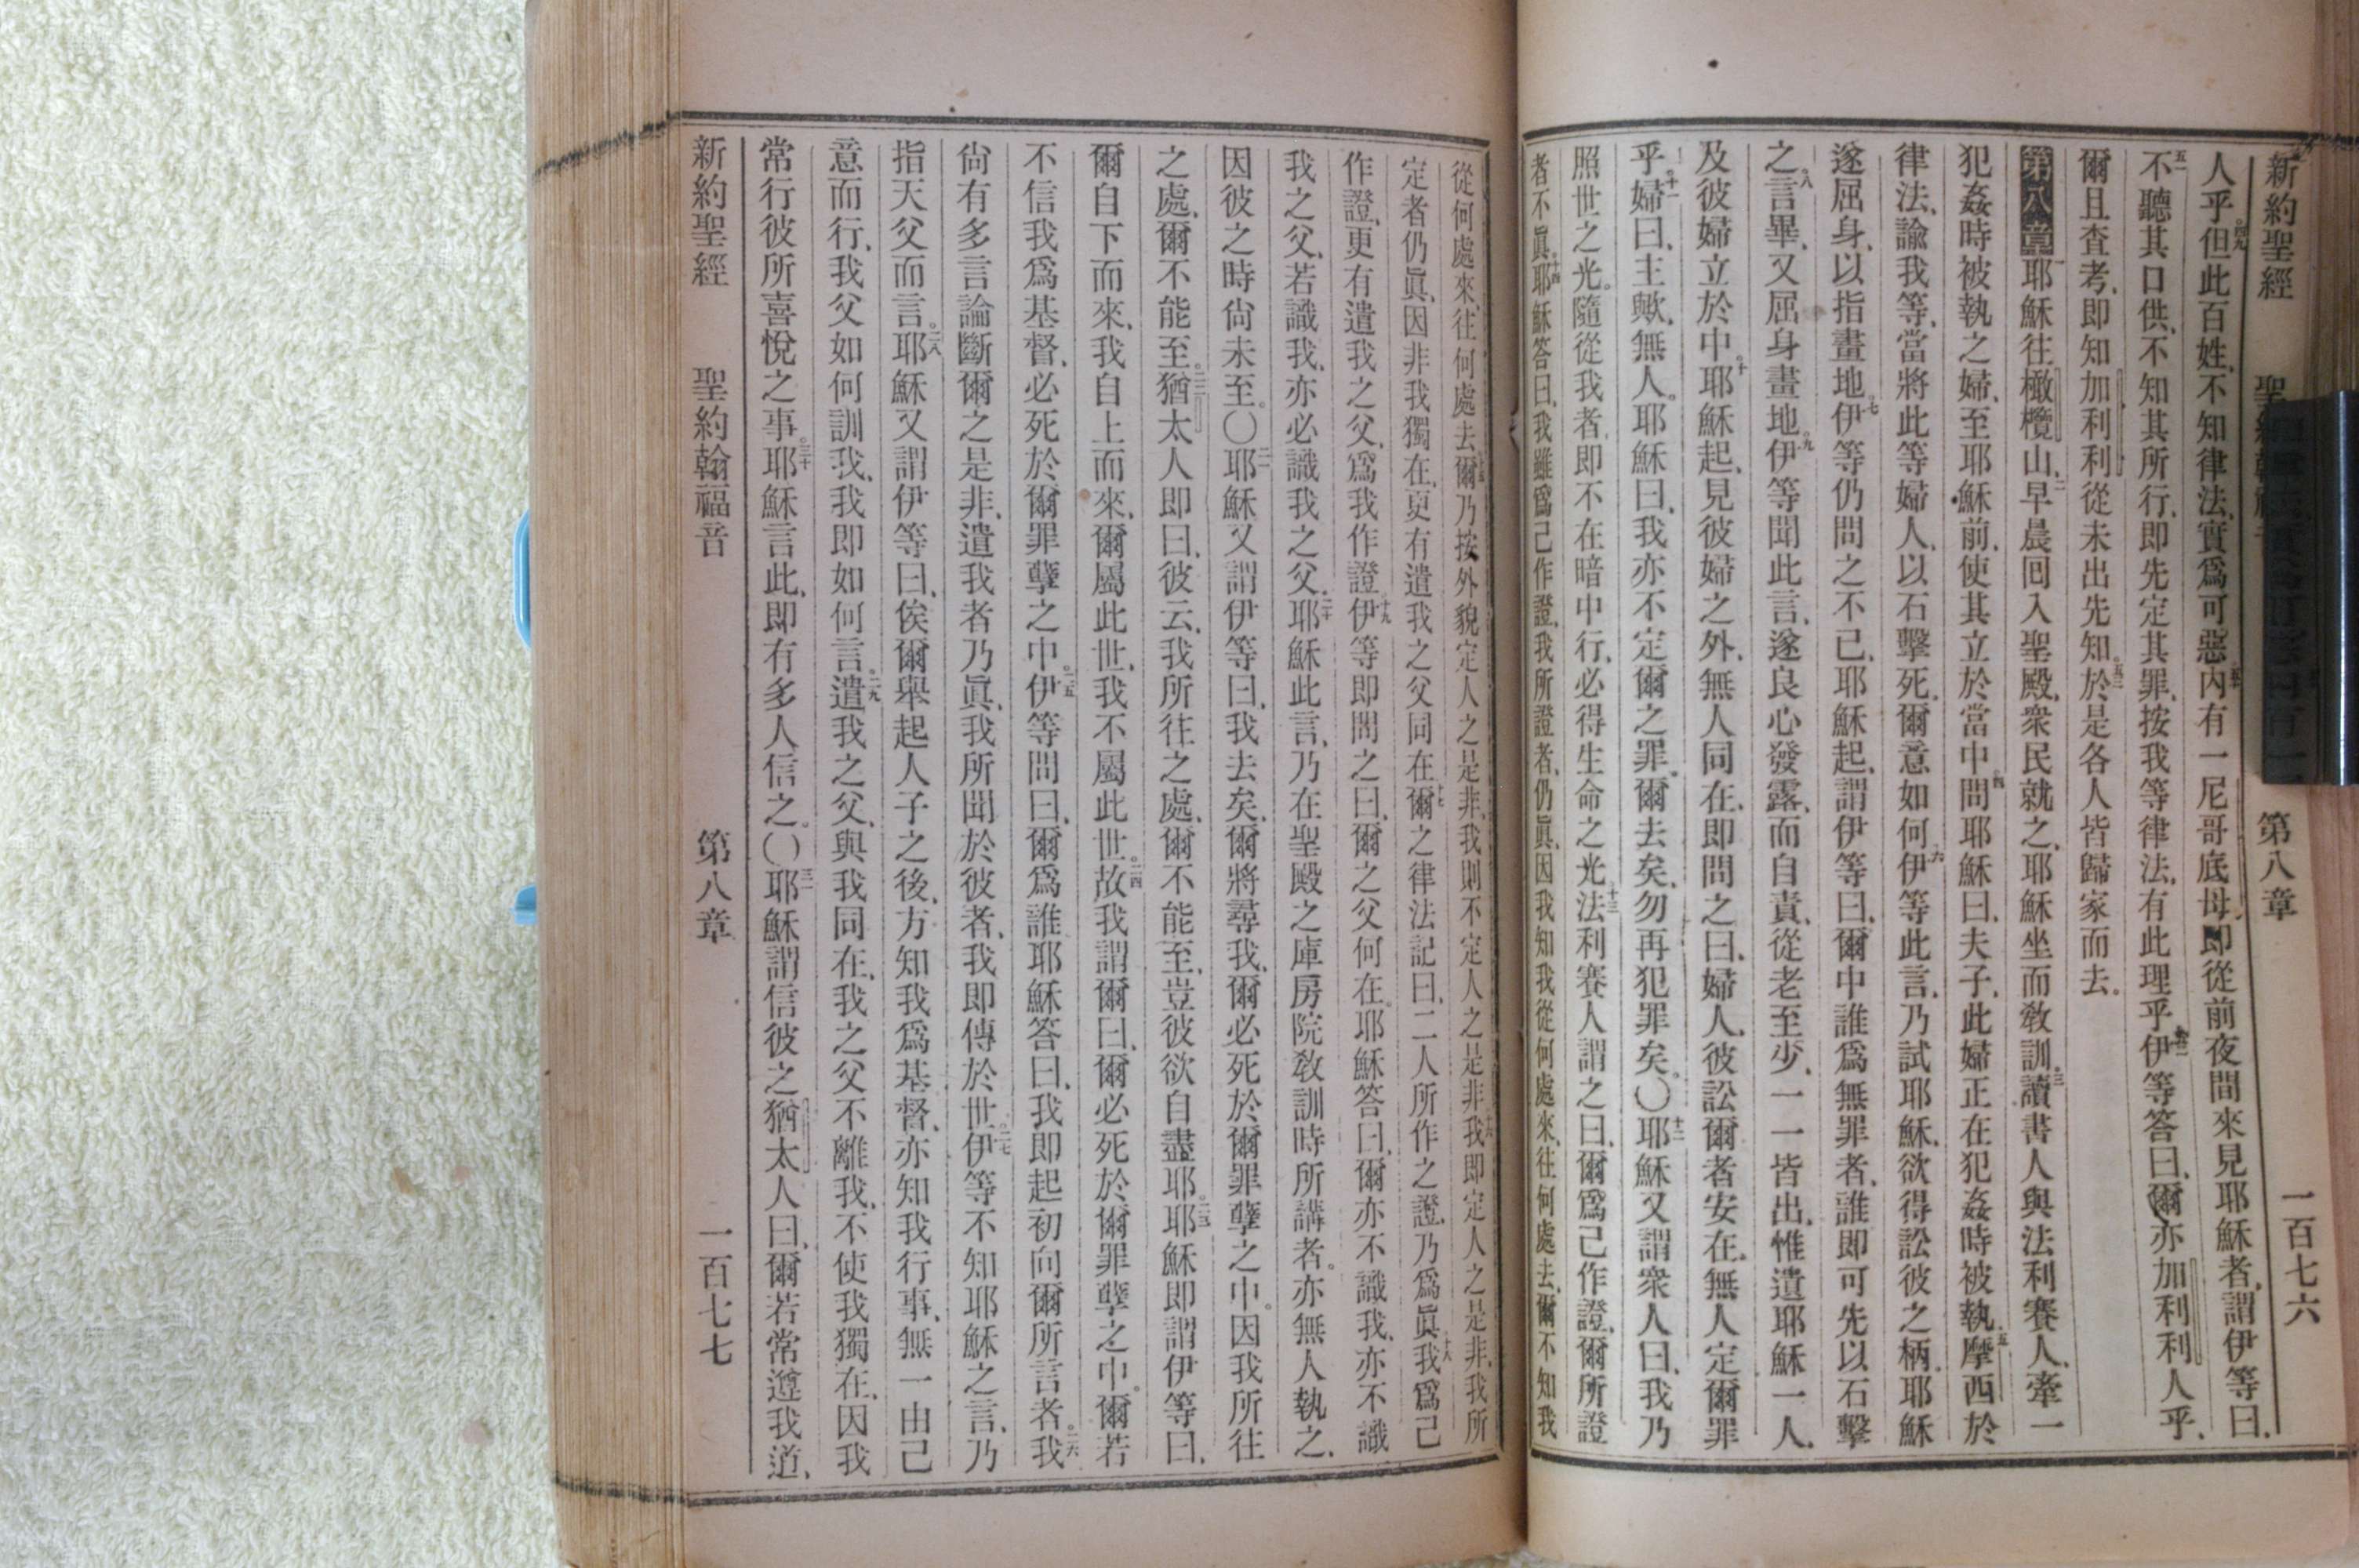 新約聖經 第八章 一百七六
人乎四九但此百姓、不知律法、實爲可惡五十內有一尼哥底母即從前夜間來見耶穌者、謂伊等曰、
五一不聽其口供、不知其所行、即先定其罪、按我等律法、有此理乎五二伊等答曰、爾亦加利利人乎、
爾且查考、即知加利利從未出先知。五三於是各人皆歸家而去。
第八章一耶穌往橄欖山、二早晨回入聖殿、衆民就之、耶穌坐而敎訓。三讀書人與法利賽人、牽一
犯姦時被執之婦、至耶穌前、使其立於當中、四問耶穌曰、夫子、此婦正在犯姦時被執、五摩西於
律法、諭我等、當將此等婦人、以石擊死、爾意如何六伊等此言、乃試耶穌、欲得訟彼之柄。耶穌
遂屈身、以指畫地。七伊等仍問之不已、耶穌起、謂伊等曰、爾中誰爲無罪者、誰即可先以石擊
之。八言畢、又屈身畫地。九伊等聞此言、遂良心發露、而自責、從老至少、一一皆出、惟遺耶穌一人、
及彼婦立於中。十耶穌起、見彼婦之外、無人同在、即問之曰、婦人、彼訟爾者安在、無人定爾罪
乎。十一婦曰、主歟、無人。耶穌曰、我亦不定爾之罪、爾去矣、勿再犯罪矣。〇十二耶穌又謂衆人曰、我乃
照世之光。隨從我者、即不在暗中行、必得生命之光。十三法利賽人謂之曰、爾爲己作證、爾所證
者不眞。十四耶穌答曰、我雖爲己作證、我所證者、仍眞、因我知我從何處來、往何處去、爾不知我
從何處來、往何處去十五爾乃按外貌定人之是非、我則不定人之是非十六我即定人之是非、我所
定者仍眞、因非我獨在、更有遣我之父同在十七爾之律法記曰、二人所作之證、乃爲眞十八我爲己
作證、更有遣我之父、爲我作證十九伊等即問之曰、爾之父何在。耶穌答曰、爾亦不識我、亦不識
我之父、若識我、亦必識我之父。二十耶穌此言、乃在聖殿之庫房院敎訓時所講者。亦無人執之、
因彼之時尙未至。〇二一耶穌又謂伊等曰、我去矣、爾將尋我、爾必死於爾罪孽之中。因我所往
之處、爾不能至。二二猶太人即曰、彼云、我所往之處、爾不能至、豈彼欲自盡耶。二三耶穌即謂伊等曰、
爾自下而來、我自上而來、爾屬此世、我不屬此世。二四故我謂爾曰、爾必死於爾罪孽之中。爾若
不信我爲基督、必死於爾罪孽之中。二五伊等問曰、爾爲誰耶穌答曰、我即起初向爾所言者。二六我
尙有多言論斷爾之是非、遣我者乃眞、我所聞於彼者、我即傳於世。二七伊等不知耶穌之言、乃
指天父而言。二八耶穌又謂伊等曰、俟爾舉起人子之後、方知我爲基督、亦知我行事、無一由己
意而行、我父如何訓我、我即如何言。二九遣我之父、與我同在、我之父不離我、不使我獨在、因我
常行彼所喜悅之事。三十耶穌言此、即有多人信之。〇三一耶穌謂信彼之猶太人曰、爾若常遵我道、
新約聖經 聖約翰福音 第八章 一百七七